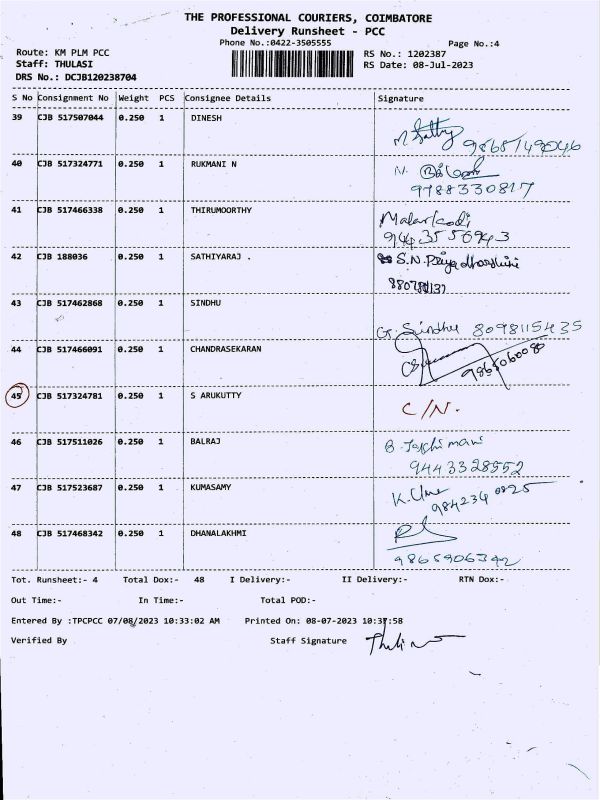 THE PROFESSIONAL COURIERS, COIMBATORE
Delivery Runsheet - PCC
Phone No.:0422-3505555 Page No.:4
Route: KM PLM PCC RS No.: 1202387
Staff: THULASI RS Date: 08-Jul-2023
DRS No.: DCJB120238704
S No Consignment No Weight PCS Consignee Details Signature
39 CJB 517507044 0.250 1 DINESH
40 CJB 517324771 0.250 1 RUKMANI N
N.
9788330817
41 CJB 517466338 0.250 1 THIRUMOORTHY
Malarkodi
9443556943
42 CJB 188036 0.250 1 SATHIYARAJ .
S.N. Priyadharshini
43 CJB 517462868 0.250 1 SINDHU
G. Sindhu 8098115435
44 CJB 517466091 0.250 1 CHANDRASEKARAN
9865060080
45 CJB 517324781 0.250 1 S ARUKUTTY
C/N.
46 CJB 517511026 0.250 1 BALRAJ
9443328552
47 CJB 517523687 0.250 1 KUMASAMY
9842340825
48 CJB 517468342 0.250 1 DHANALAKHMI
9865906342
Tot. Runsheet:- 4 Total Dox:- 48 I Delivery:- II Delivery:- RTN Dox:-
Out Time:- In Time:- Total POD:-
Entered By :TPCPCC 07/08/2023 10:33:02 AM Printed On: 08-07-2023 10:37:58
Verified By Staff Signature